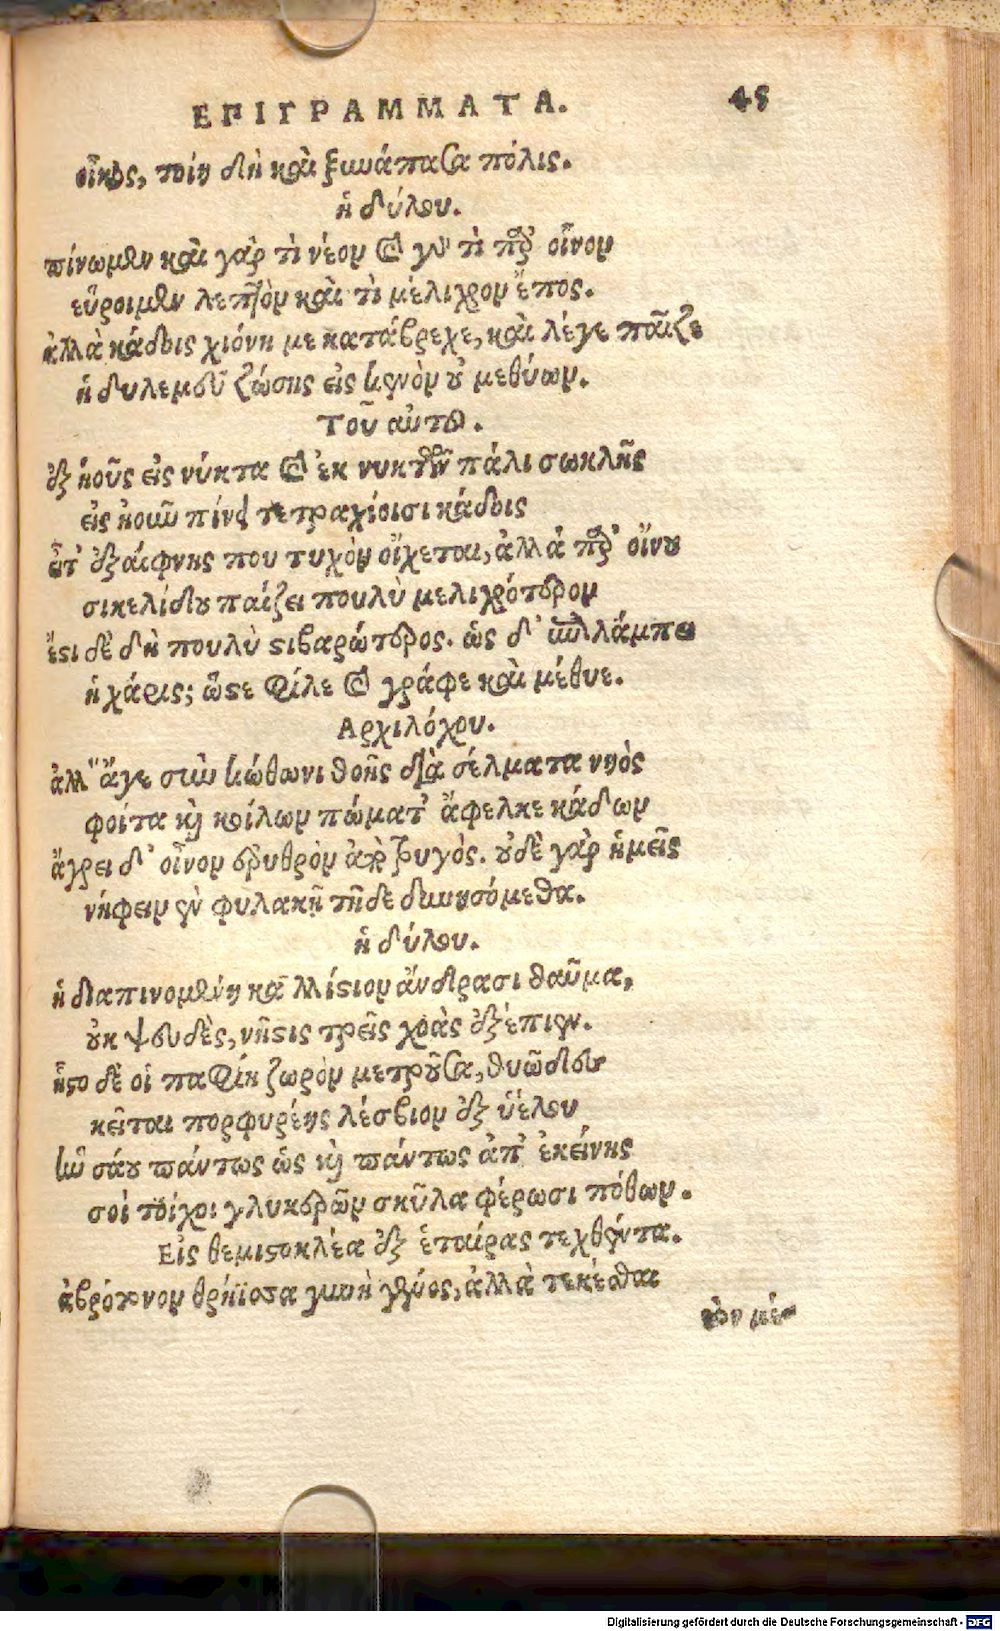 ΕΠΙΓΡΑΜΜΑΤΑ. 45
οἶκος, τοίη δὴ καὶ ξυνάπασα πόλις.
ἡδύλου.
πίνωμεν καὶ γάρ τι νέον καὶ γάρ τι παρ' οἶνον
εὕροιμεν λεπτὸν καὶ τι μέλιχρον ἔπος.
ἀλλὰ κάδοις χιόνη με κατάβρεχε, καὶ λέγε παῖζε
ἡδυλεμοῦ ζώσης εἰς κενὸν οὐ μεθύων.
Τοῦ αὐτοῦ.
ἐξ ἠοῦς εἰς νύκτα καὶ ἐκ νυκτῶν πάλι σωκλῆς
εἰς ἠοῦν πίνει τετραχίοισι κάδοις
εἶτ' ἐξαίφνης που τυχὸν οἴχεται, ἀλλὰ παρ' οἴνου
σικελίδου παίζει πουλὺ μελιχρότερον
ἔστι δὲ δὴ πουλὺ στιβαρώτερος. ὡς δ' ἐπιλάμπει
ἡ χάρις; ὥστε φίλε καὶ γράφε καὶ μέθυε.
Αρχιλόχου.
ἀλλ' ἄγε σὺν κώθωνι θοῆς διὰ σέλματα νηὸς
φοίτα καὶ κοίλων πώματ' ἄφελκε κάδων
ἄγρει δ' οἶνον ἐρυθρὸν ἀπὸ τρυγός. οὐδὲ γὰρ ἡμεῖς
νήφειν ἐν φυλακῇ τῇδε δυνησόμεθα.
ἡδύλου.
ἡ διαπινομένη καλλίστιον ἀνδράσι θαῦμα,
οὐκ ψευδὲς, νῆστις τρεῖς χοὰς ἐξέπιεν.
ἧστο δὲ οἱ παφίη ζωρὸν μετροῦσα, θυῶδες
κεῖται πορφυρέης λέσβιον ἐξ ὑέλου
ἣν σάου πάντως ὡς καὶ πάντως ἀπ' ἐκείνης
σοὶ τοίχοι γλυκερῶν σκῦλα φέρωσι πόθων.
Εἰς θεμιστοκλέα ἐξ ἑταίρας τεχθέντα.
ἀβρότονον θρήϊσσα γυνὴ γένος, ἀλλὰ τεκέσθαι
τὸν μέ-
Digitalisierung gefördert durch die Deutsche Forschungsgemeinschaft - DFG